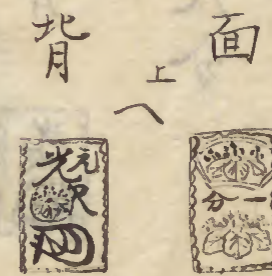 面
一分
上
へ
背
元
光次